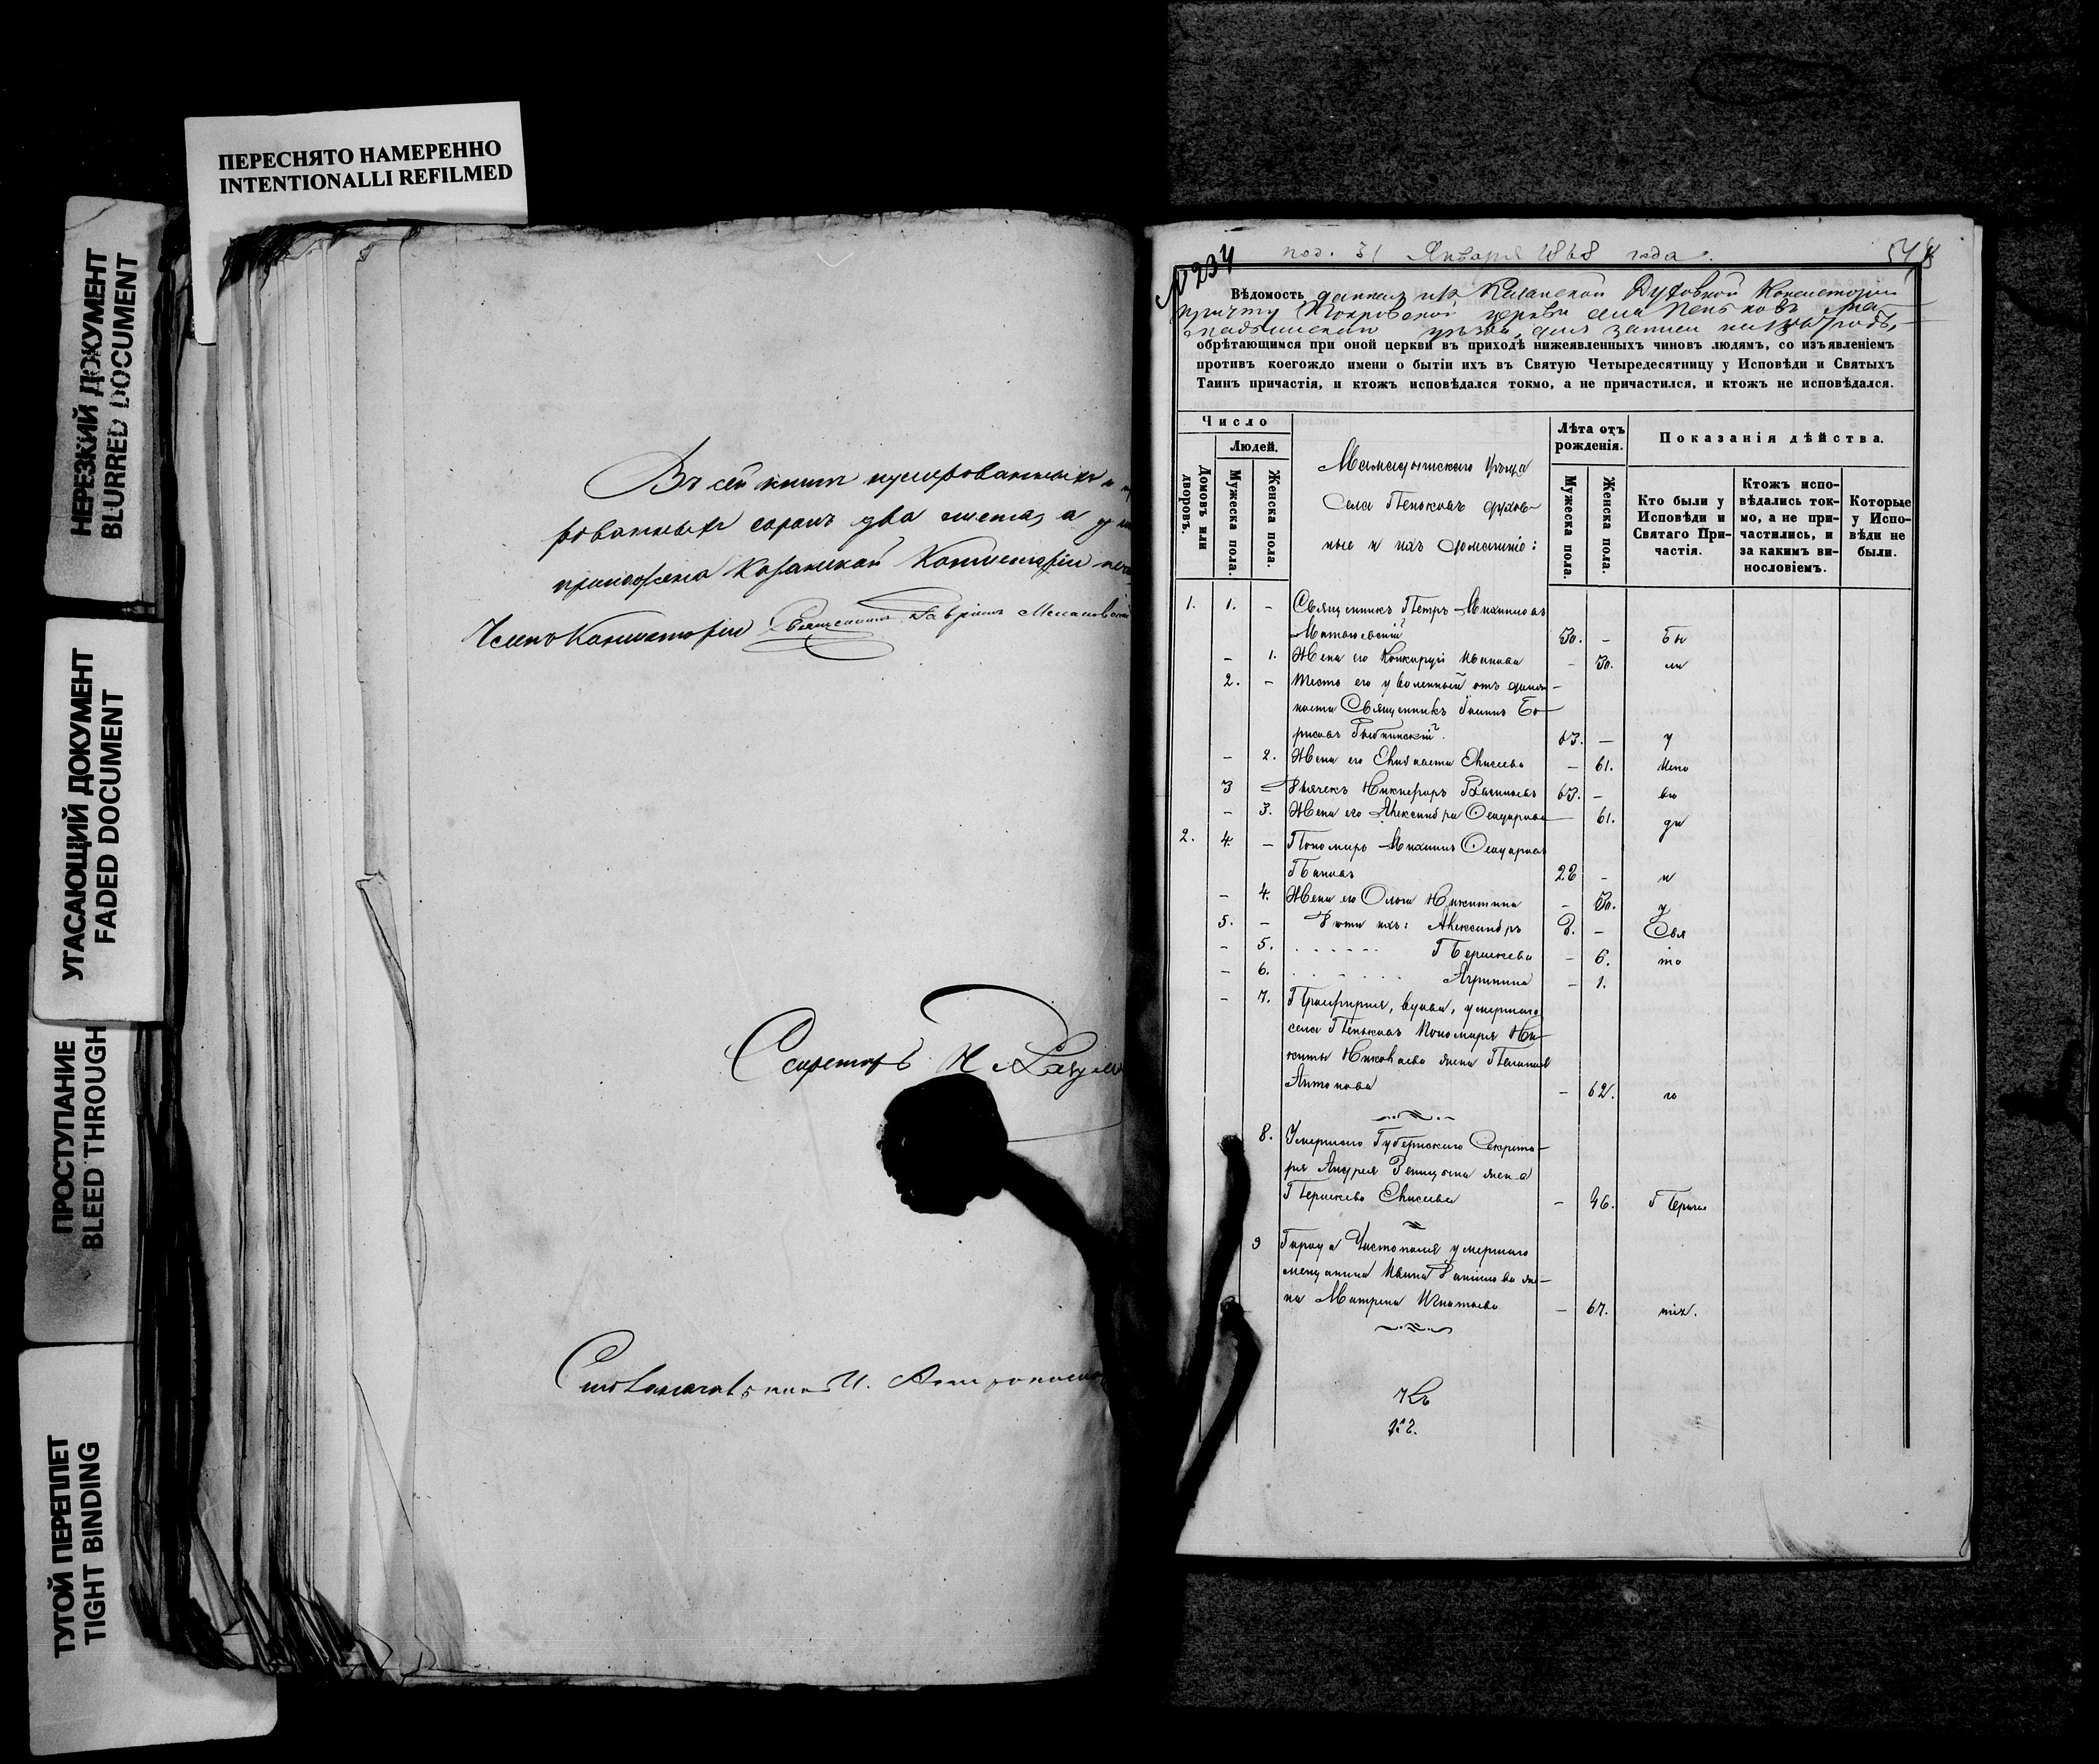 ПЕРЕСНЯТО НАМЕРЕННО
INTENTIONALLI REFILMED
НЕРЕЗКИЙ ДОКУМЕНТ
BLURRED DOCUMENT
УГАСАЮЩИЙ ДОКУМЕНТ
FADED DOCUMENT
ПРОСТУПАНИЕ
BLEED THROUGH
ТУГОЙ ПЕРЕПЛЕТ
TIGHT BINDING
Въ сей книги нумерованныхъ и
рованныхъ сорокъ два листа, а у
приложена Казанской Консисторіи
Членъ Консисторіи Священникъ Гавріилъ
Секретарь Н.
Столоначальникъ И.
под. 31 Января 1868 года.
№ 234
Вѣдомость данная изъ Казанской Духовной Консисторіи
причту Покровской церкви села Пеньковъ Ма-
мадышскаго уѣзда, для записи
обрѣтающимся при оной церкви въ приходѣ нижеявленныхъ чиновъ людямъ, со изъявленіемъ
противъ коегождо имени о бытіи ихъ въ Святую Четыредесятницу у Исповѣди и Святыхъ
Таинъ причастія, и ктожъ исповѣдался токмо, а не причастился, и ктожъ не исповѣдался.
Число
Людей.
Домовъ или дворовъ.
Мужеска пола.
Женска пола.
Мамадышскаго Уѣзда
Села Пеньковъ духов-
ные и ихъ домашніе:
Лѣта отъ рожденія.
Мужеска пола.
Женска пола.
Показанія дѣйства.
Кто были у Исповѣди и Святаго Причастія.
Ктожъ исповѣдались токмо, а не причастились, и за какимъ винословіемъ.
Которые у Исповѣди не были.
1. 1. – Священникъ Петръ Михаиловъ
30. – Бы
– 1. Жена его Ивановна – 30. ли
2. – Тесть его уволенный отъ долж-
ности Священникъ Іоаннъ Бо-
рисовъ 63. – у
– 2. Жена его Елисеева – 61. Испо
3 – Дьячекъ Никифоръ 63. – вѣ
– 3. Жена его Александра Ѳеодорова – 61. ди
2. 4. – Пономарь Михаилъ Ѳеодоровъ
Поповъ 28 – и
– 4. Жена его Ольга Никитина – 30. у
5. – Дѣти ихъ: Александръ – Свя
– 5. Пераскева – 6. та
– 6. Агрипина – 1.
– 7. вдова, умершаго
села Пеньковъ Пономаря Ни-
киты Николаева жена Пелагія
Антонова – 62. го
8. Умершаго Губернскаго Секрета-
ря Андрея жена
Пераскева Елисеева – 46. Прича
9 Города Чистополя умершаго
мещанина Ивана Данилова же-
на Матрена Игнатьева – 67. тія.